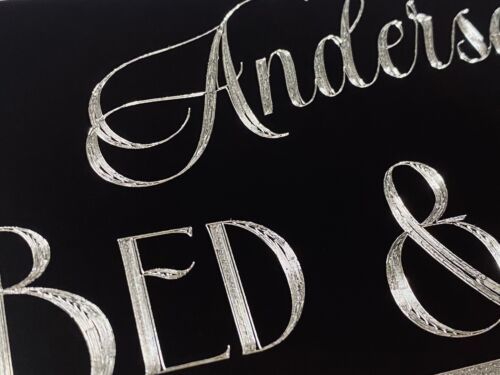 Anders
BED &